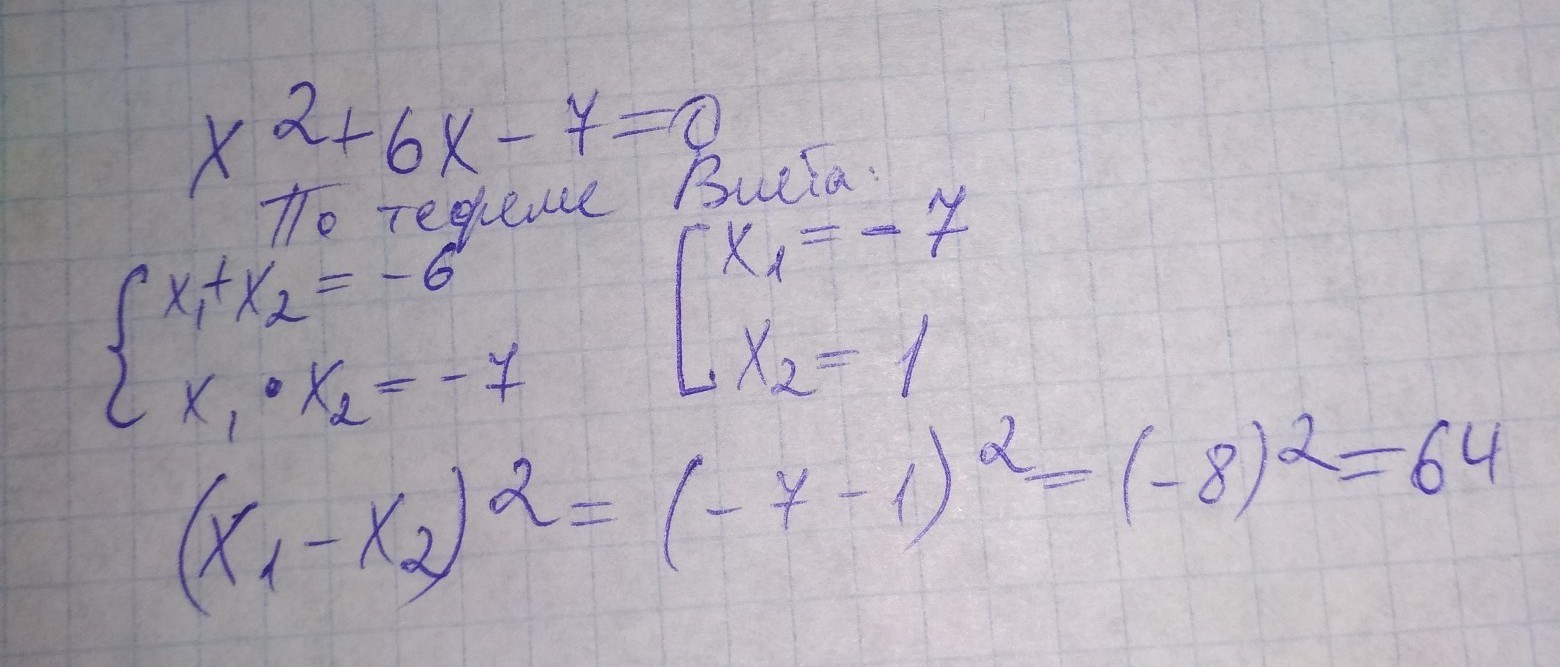 x² + 6x - 7 = 0
По теореме Виета:
{ x₁ + x₂ = -6 [ x₁ = -7
x₁ • x₂ = -7 x₂ = 1
(x₁ - x₂)² = (-7 - 1)² = (-8)² = 64